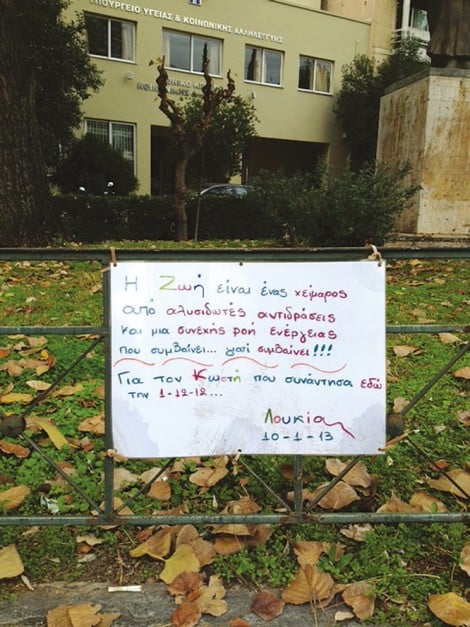 ΥΠΟΥΡΓΕΙΟ ΥΓΕΙΑΣ & ΚΟΙΝΩΝΙΚΗΣ ΑΛΛΗΛΕΓΓΥΗΣ
Η Ζωή είναι ένας χείμαρος
από αλυσιδωτές αντιδράσεις
και μια συνεχής ροή ενέργειας
που συμβαίνει... γιατί συμβαίνει!!!
Για τον Κωστή που συνάντησα εδώ
την 1-12-12...
Λουκία
10-1-13